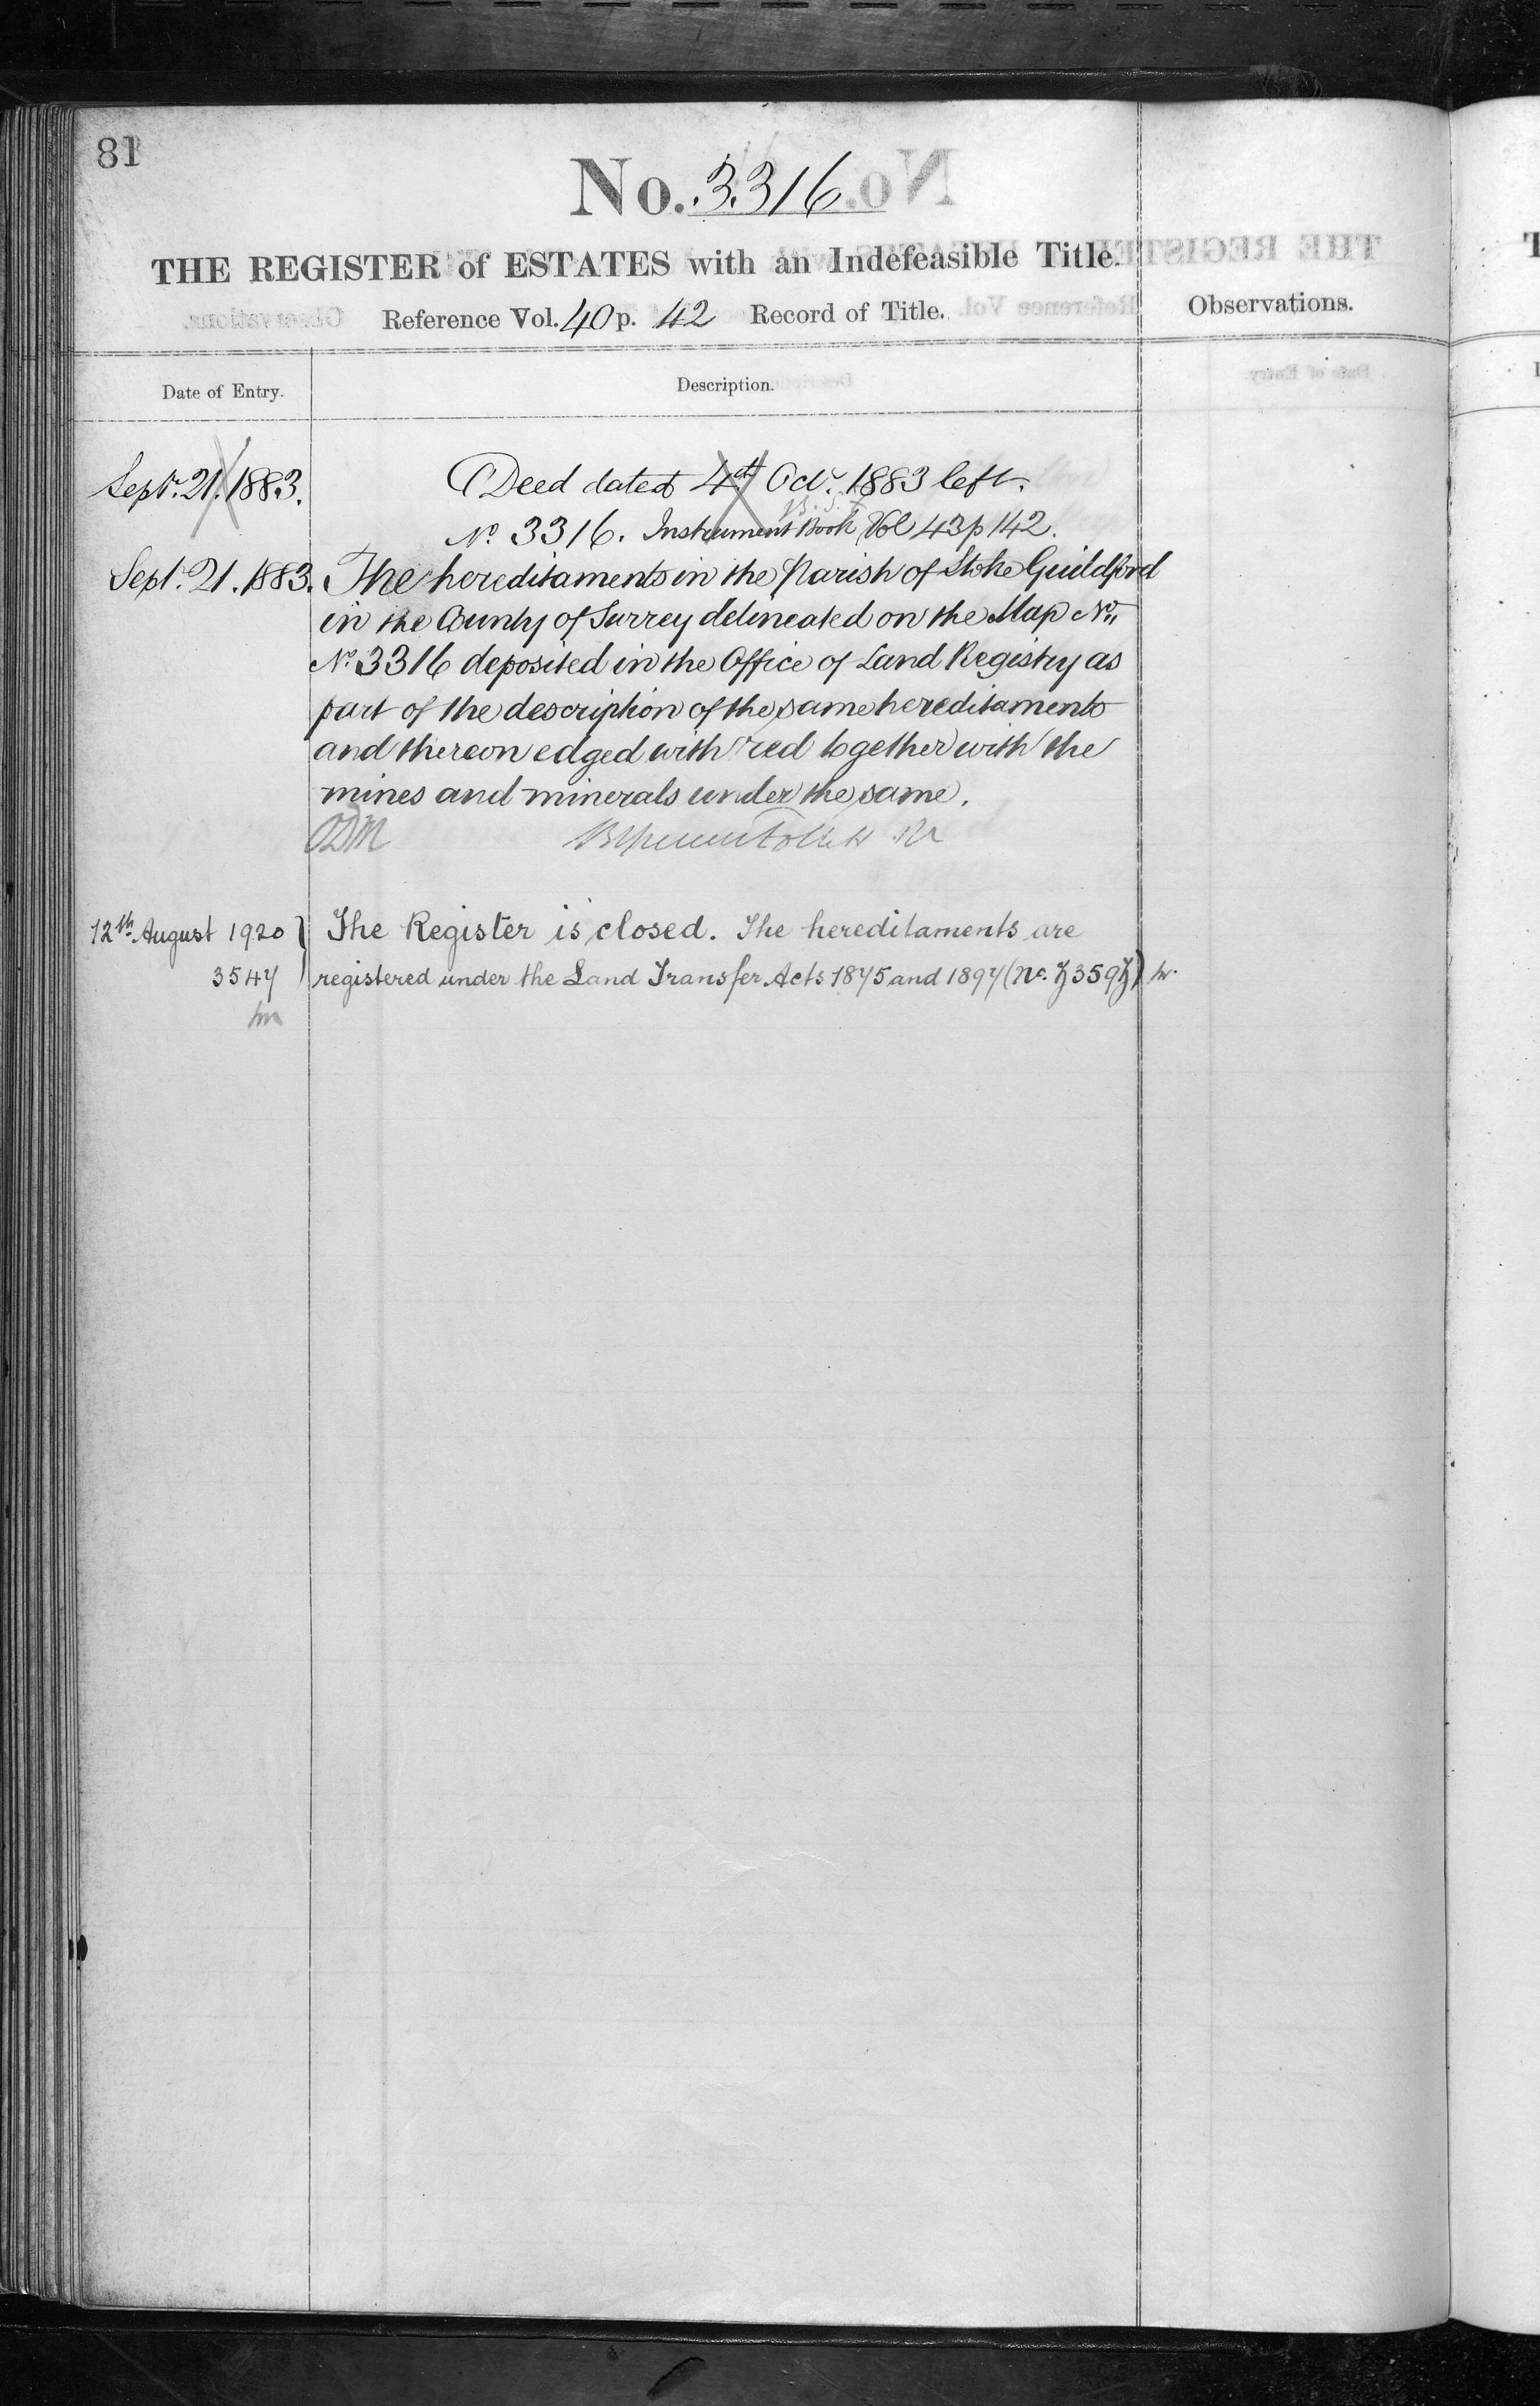 81
No. 3316
THE REGISTER of ESTATES with an Indefeasible Title.
Reference Vol. 40 p. 42 Record of Title.
Observations.
Date of Entry.
Description.
Sept. 21. 1883. Deed dated 4th Octr. 1883 left.
No. 3316. Instrument Book Vol 43 p 142.
Sept. 21. 1883. The hereditaments in the Parish of Stoke Guildford
in the County of Surrey delineated on the Map No.
No. 3316 deposited in the Office of Land Registry as
part of the description of the same hereditaments
and thereon edged with red together with the
mines and minerals under the same.
12th August 1920 } The Register is closed. The hereditaments are
3547 registered under the Land Transfer Acts 1875 and 1897